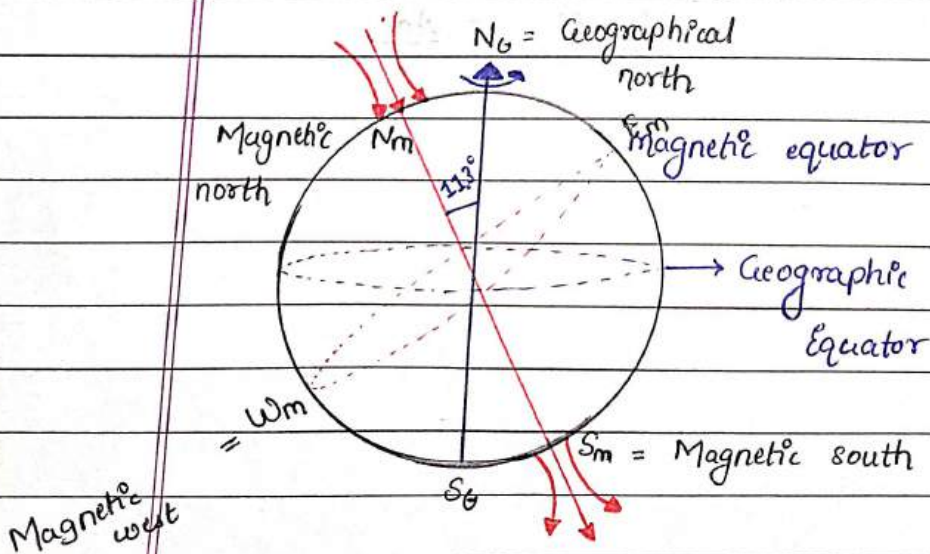 N_G = Geographical
north
Magnetic
north
N_m
E_m
Magnetic equator
11.3°
Geographic
Equator
W_m
=
Magnetic
west
S_m = Magnetic south
S_G